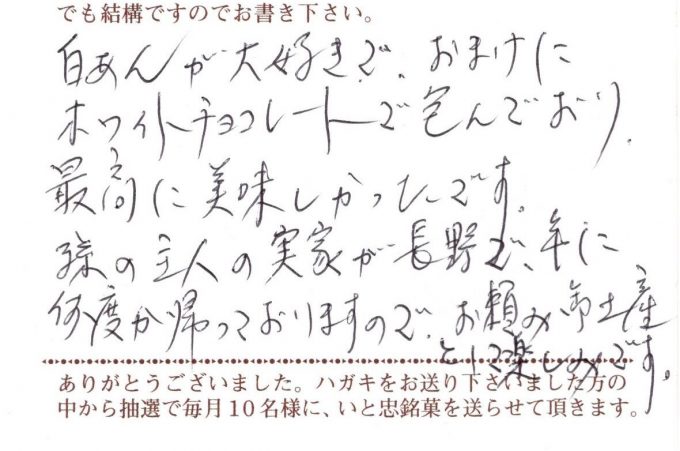 でも結構ですのでお書き下さい。
白あんが大好きで、おまけに
ホワイトチョコレートで包んでおり、
最高に美味しかったです。
孫の主人の実家が長野で、年に
何度か帰っておりますので、お頼み御土産
として楽しみです。
ありがとうございました。ハガキをお送り下さいました方の
中から抽選で毎月10名様に、いと忠銘菓を送らせて頂きます。